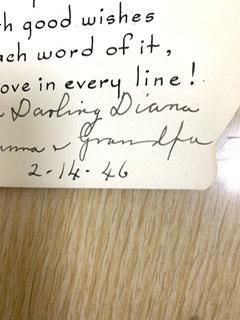 h good wishes
ach word of it,
ove in every line!
Darling Diana
anna & Grandpa
2-14-46